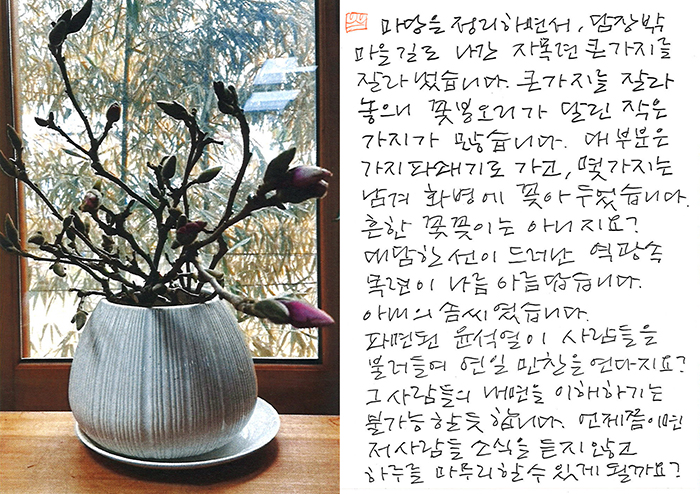 마당을 정리하면서, 담장밖
마을길로 나간 자목련 큰가지를
잘라 냈습니다. 큰가지를 잘라
놓으니 꽃봉오리가 달린 작은
가지가 많습니다. 대부분은
가지파쇄기로 가고, 몇가지는
남겨 화병에 꽂아 두었습니다.
흔한 꽃꽂이는 아니지요?
대담한 선이 드러난 역광속
목련이 나름 아름답습니다.
아내의 솜씨였습니다.
파면된 윤석열이 사람들을
불러들여 연일 만찬을 연다지요?
그 사람들의 내면을 이해하기는
불가능할듯 합니다. 언제쯤이면
저사람들 소식을 듣지않고
하루를 마무리할수 있게 될까요?